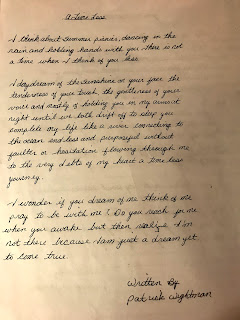 A Time Less
I think about summer picnics, dancing in the
rain and holding hands with you there is not
a time when I think of you less
I daydream of the sunshine on your face the
tenderness of your touch, the gentleness of your
voice and mostly of holding you in my arms at
night until we both drift off to sleep you
complete my life like a river connecting to
the ocean endless and purposeful without
faulter or hesitation flowing through me
to the very debts of my heart a time less
journey.
I wonder if you dream of me think of me
pray to be with me? Do you reach for me
when you awake but then realize I'm
not there because I am just a dream yet
to come true.
Written By
Patrick Wightman